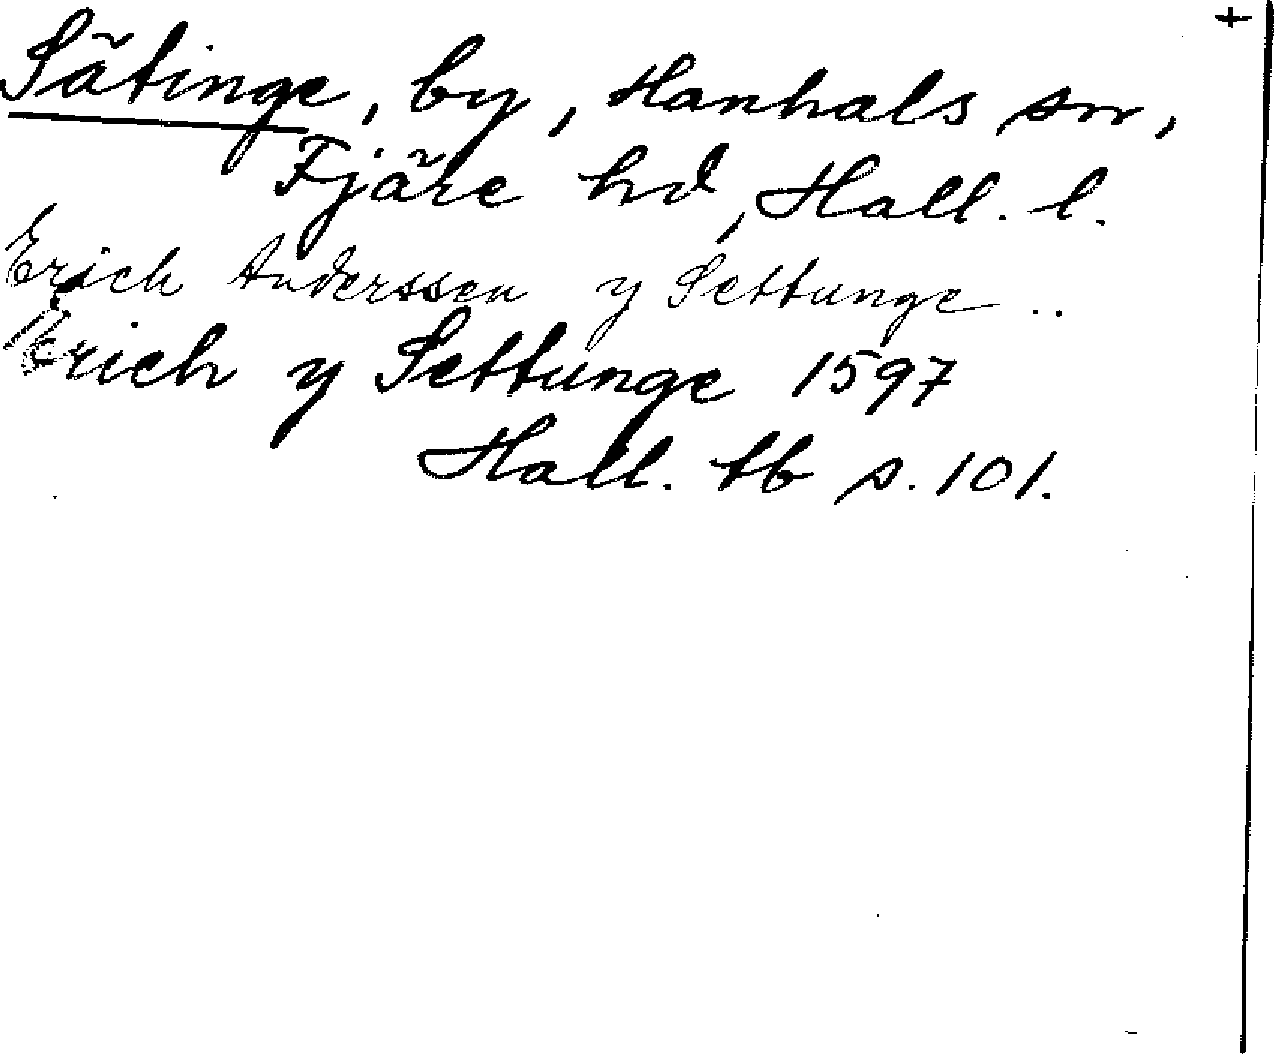 +
Sätinge, by, Hanhals sn,
Fjäre hd, Hall. l.
Erich Anderssen y Settunge ..
Erich y Settunge 1597
Hall. tb s. 101.